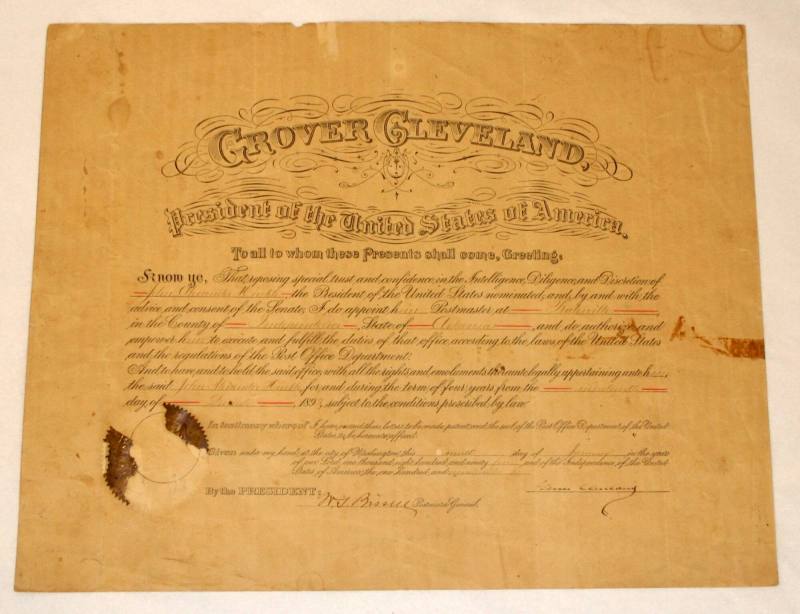 GROVER CLEVELAND,
President of the United States of America.
To all to whom these Presents shall come, Greeting:
Know ye, That reposing special trust and confidence in the Intelligence, Diligence, and Discretion of
John the President of the United States nominated, and, by and with the
advice and consent of the Senate, I do appoint him Postmaster at
in the County of Independence, State of Arkansas, and do authorize and
empower him to execute and fulfill the duties of that office according to the laws of the United States
and the regulations of the Post Office Department:
And to have and to hold the said office, with all the rights and emoluments thereunto legally appertaining unto him
the said John for and during the term of four years from the
day of 189 , subject to the conditions prescribed by law.
In testimony whereof I have caused these letters to be made patent, and the seal of the Post Office Department of the United
States, to be hereunto affixed.
Given under my hand, at the city of Washington, this day of in the year
of our Lord, one thousand eight hundred and ninety and of the Independence of the United
States of America, the one hundred and
By the PRESIDENT:
W. S. Bissell Postmaster General.
Grover Cleveland